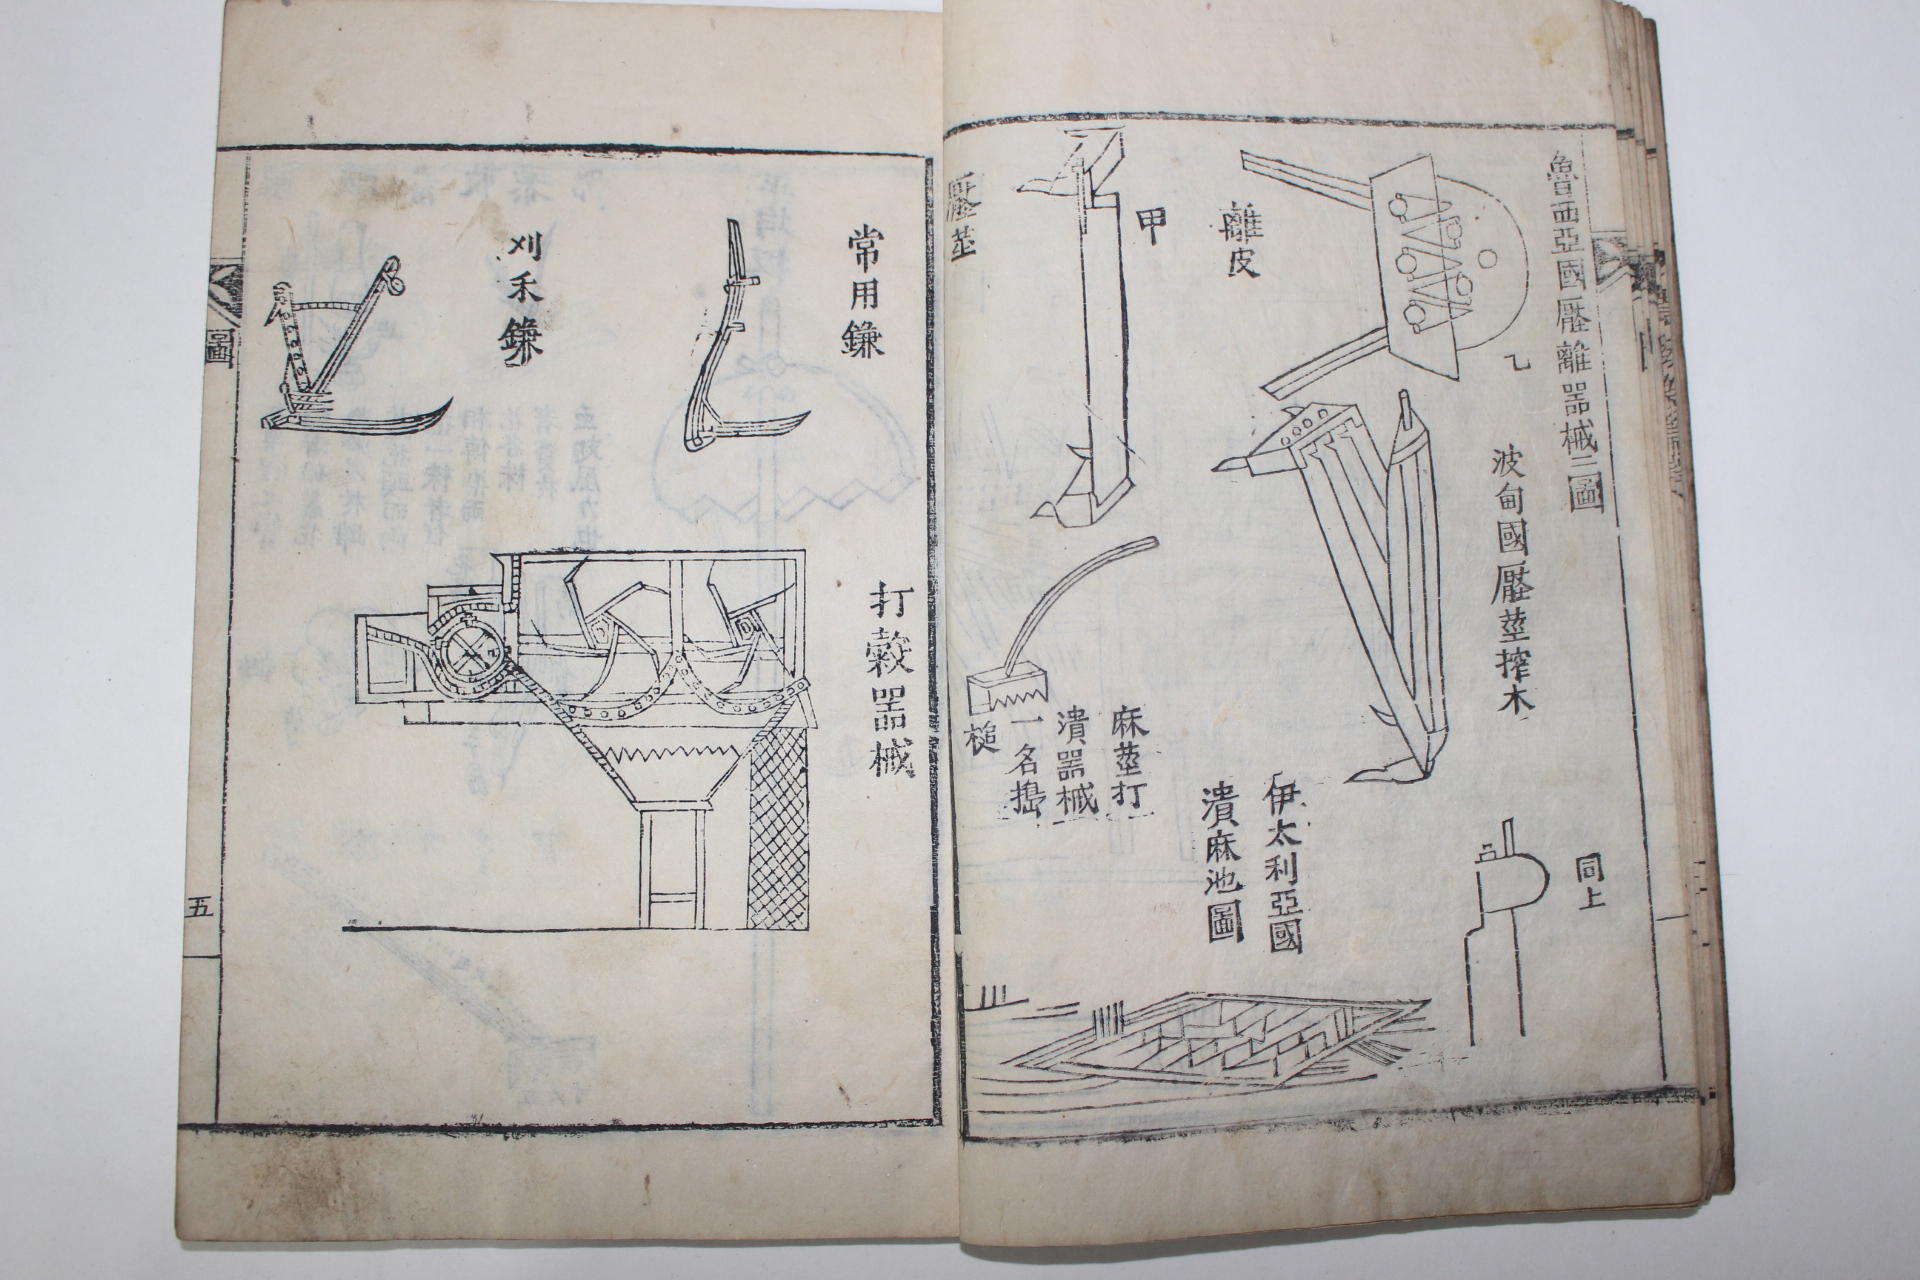 魯西亞國壓離器械三圖
乙
離皮
甲
壓莖
波甸國壓莖搾木
同上
麻莖打
潰器械
一名搗
槌
伊太利亞國
潰麻池圖
常用鎌
刈禾鎌
打穀器械
圖
五